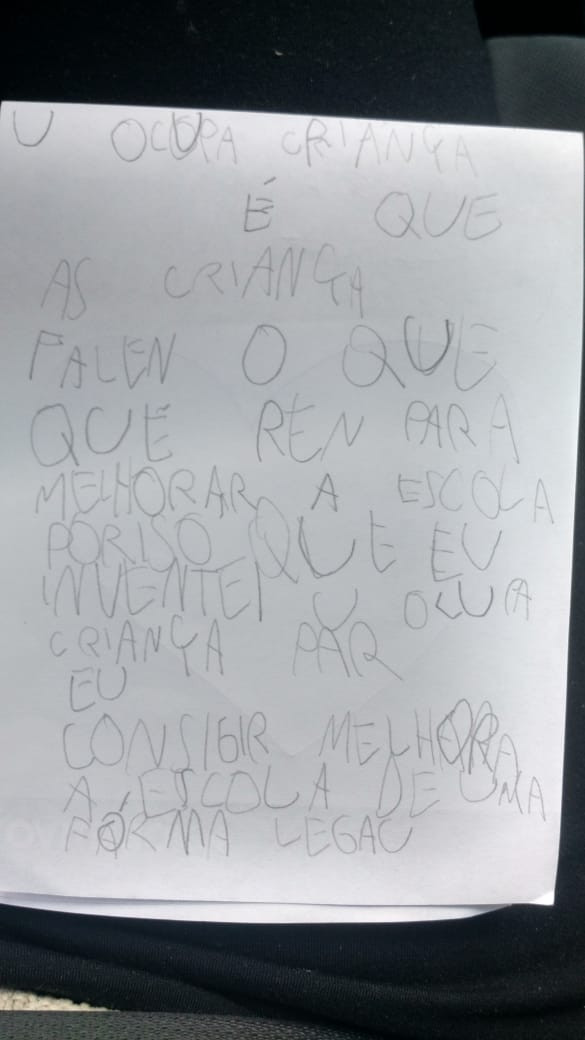 U OCUPA CRIANÇA
É QUE
AS CRIANÇA
FALEN O QUE
QUE REN PARA
MELHORAR A ESCOLA
PORISO QUE EU
INVENTEI U OCUPA
CRIANÇA PAR
EU
CONSIGIR MELHORA
A ESCOLA DE UMA
FÓRMA LEGAU